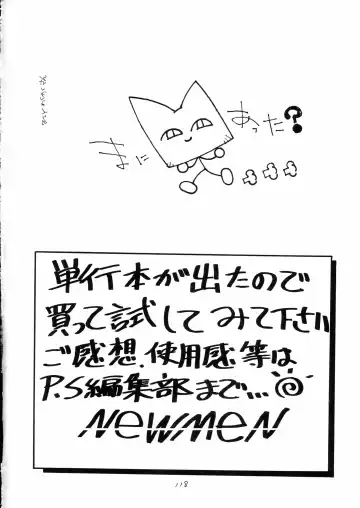 まに
あった?
単行本が出たので
買って試してみて下さい
ご感想、使用感等は
P.S編集部まで...
NEWMEN
118